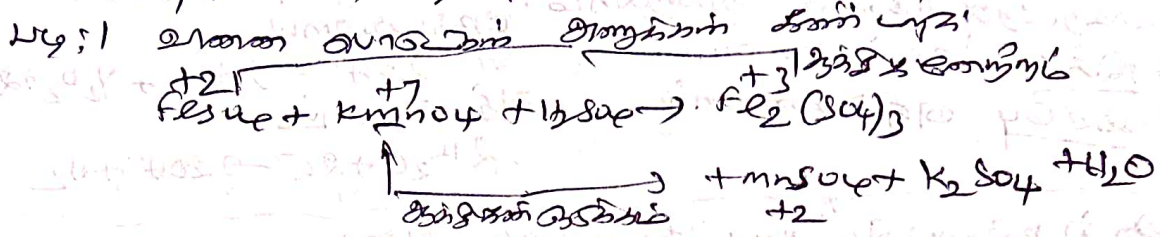 படி : 1 வினை பொருட்கள் அணுக்கள்
+2 +7 +3 ஆக்சிஜனேற்றம்
FeSO4 + KMnO4 + H2SO4 → Fe2 (SO4)3
+ MnSO4 + K2SO4 + H2O
ஆக்சிஜன் ஒடுக்கம் +2